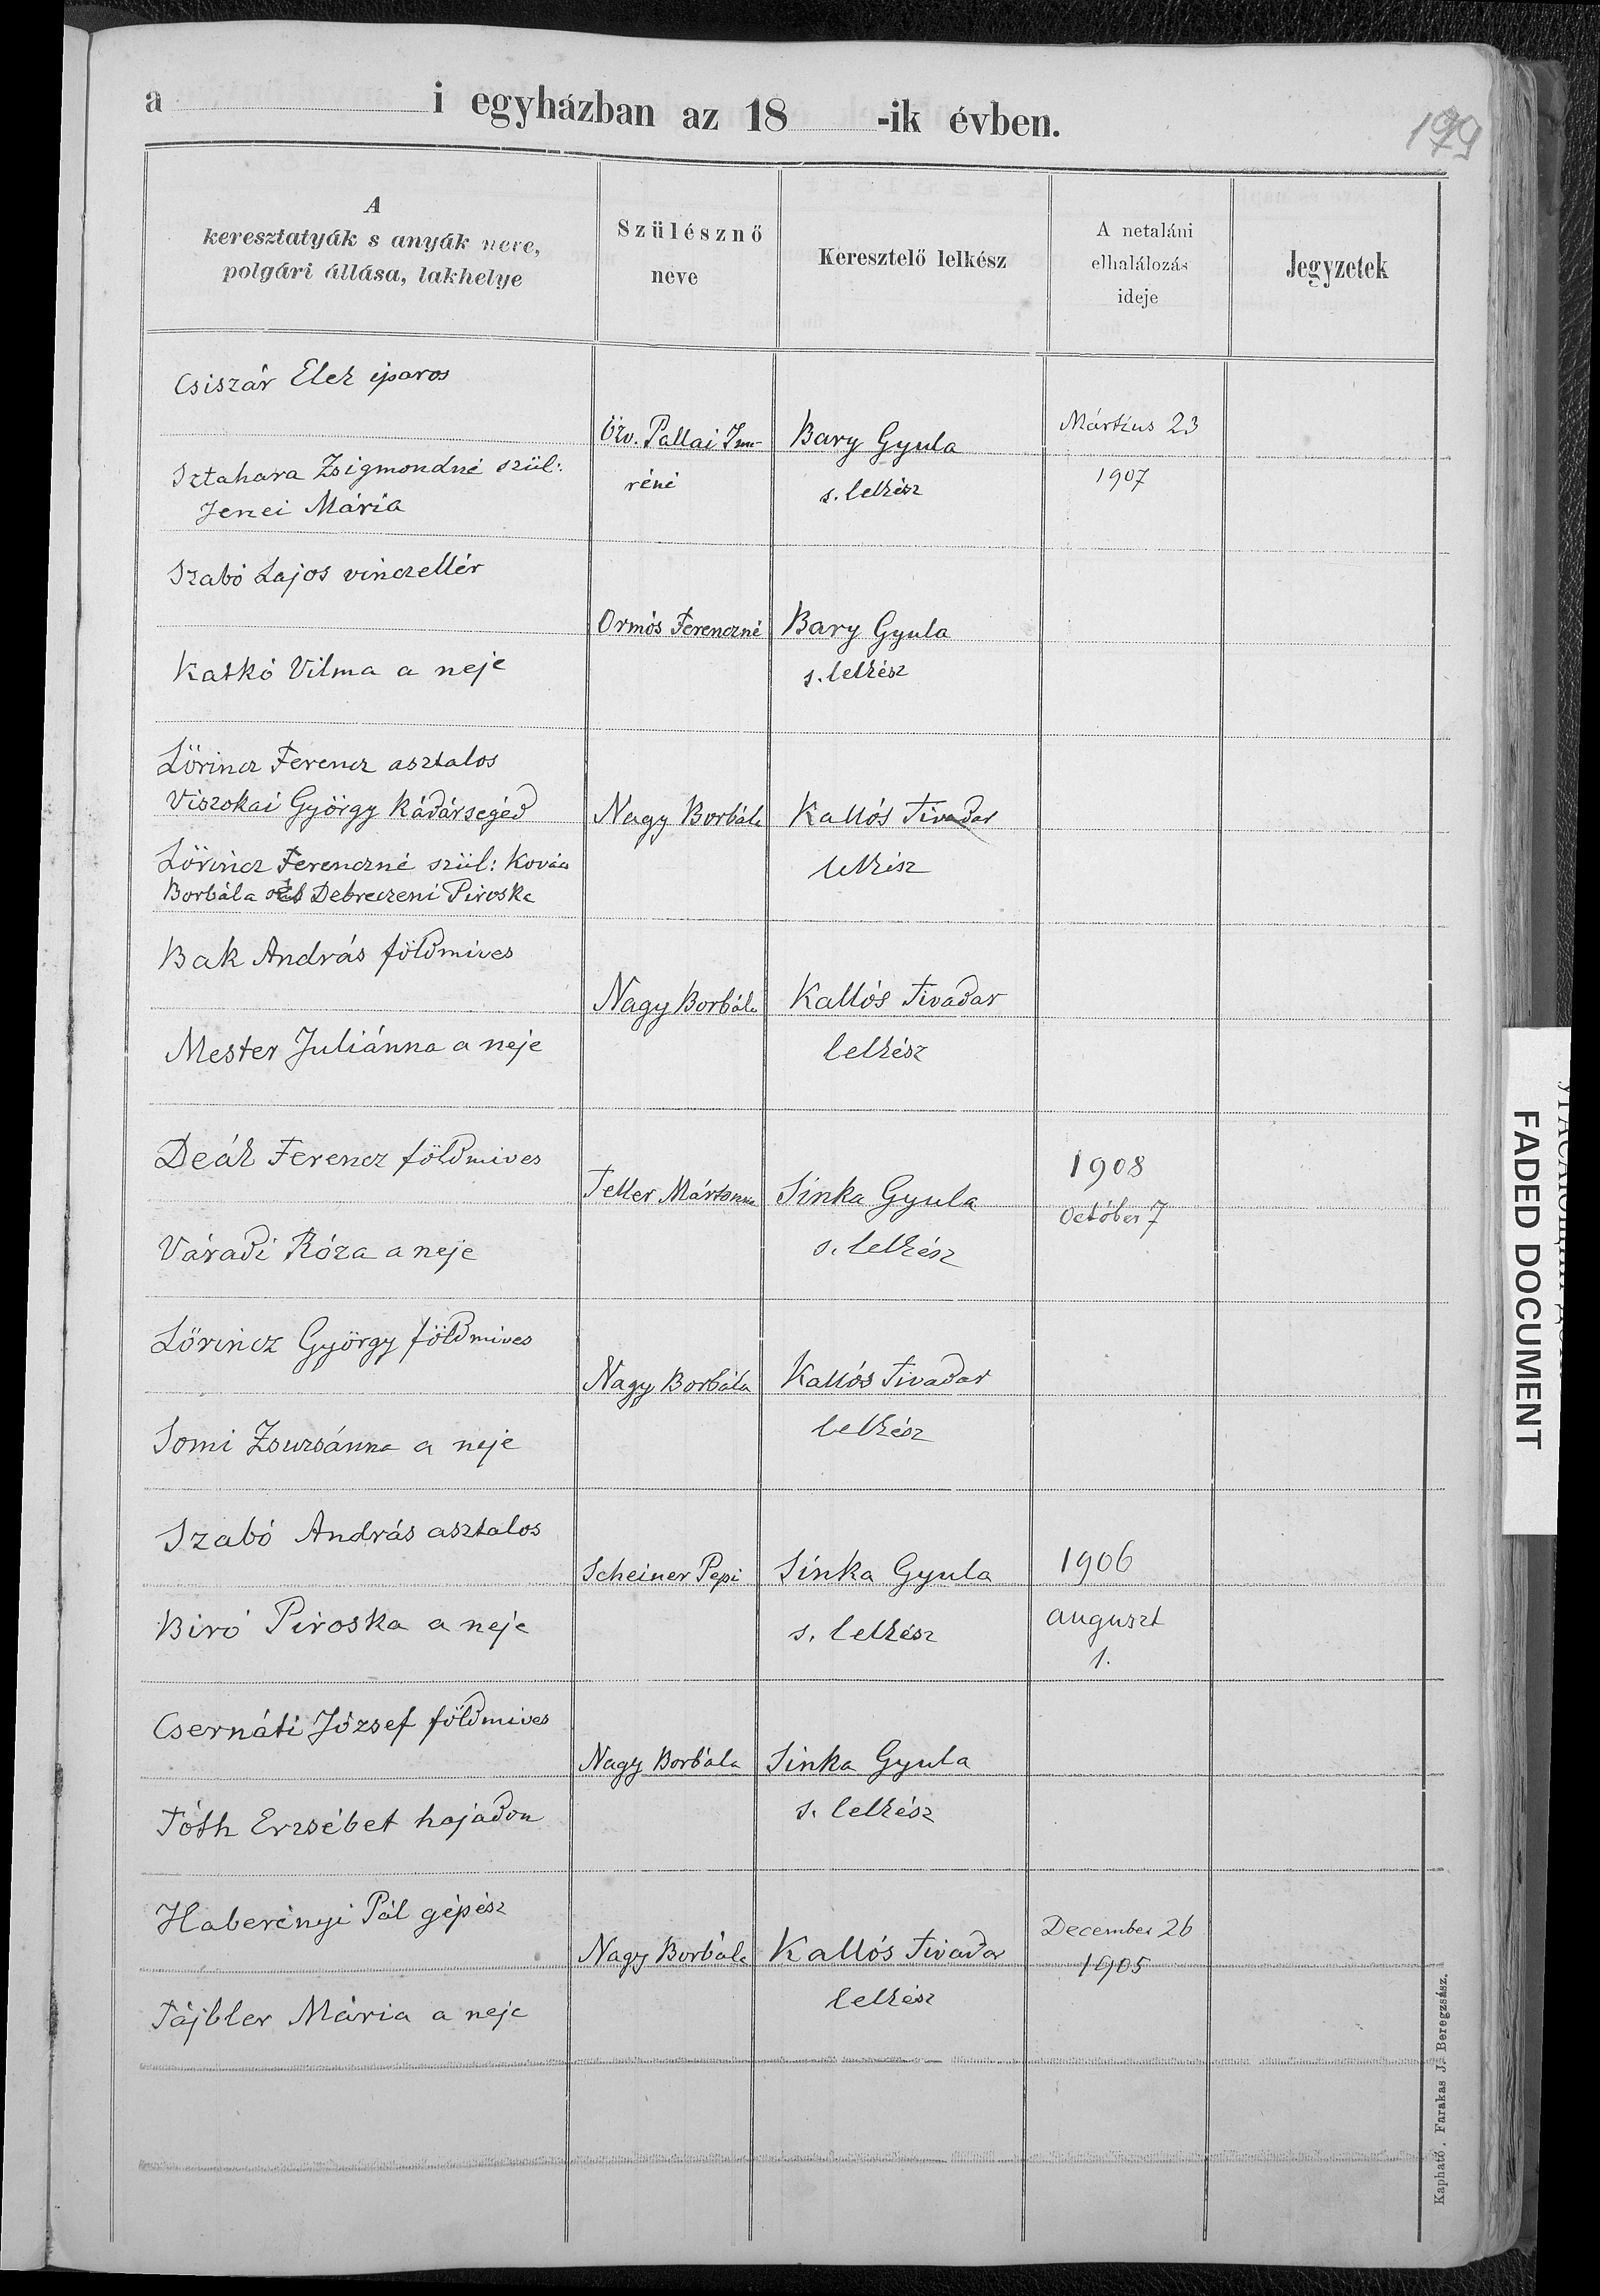 a i egyházban az 18 -ik évben.
A
keresztatyák s anyák neve,
polgári állása, lakhelye
Szülésznő
neve
Keresztelő lelkész
A netaláni
elhalálozás
ideje
Jegyzetek
Csiszár Elek iparos
Sztahara Zsigmondné szül:
Jenei Mária
Özv. Pallai Im-
réné
Bary Gyula
s. lelkész
Mártius 23
1907
Szabó Lajos vinczellér
Katkó Vilma a neje
Ormós Ferenczné
Bary Gyula
s. lelkész
Lőrincz Ferencz asztalos
Viszokai György kádársegéd
Lőrincz Ferenczné szül: Kovács
Borbála és Debreczeni Piroska
Nagy Borbála
Kallós Tivadar
lelkész
Bak András földmives
Mester Juliánna a neje
Nagy Borbála
Kallós Tivadar
lelkész
Deák Ferencz földmives
Váradi Róza a neje
Teller Mártonné
Sinka Gyula
s. lelkész
1908
október 7
Lőrincz György földmives
Somi Zsuzsánna a neje
Nagy Borbála
Kallós Tivadar
lelkész
Szabó András asztalos
Biró Piroska a neje
Scheiner Pepi
Sinka Gyula
s. lelkész
1906
auguszt
1.
Csernáti József földmives
Tóth Erzsébet hajadon
Nagy Borbála
Sinka Gyula
s. lelkész
Haberényi Pál gépész
Tájbler Mária a neje
Nagy Borbála
Kallós Tivadar
lelkész
December 26
1905
Kapható Farakas J. Beregzsász.
FADED DOCUMENT